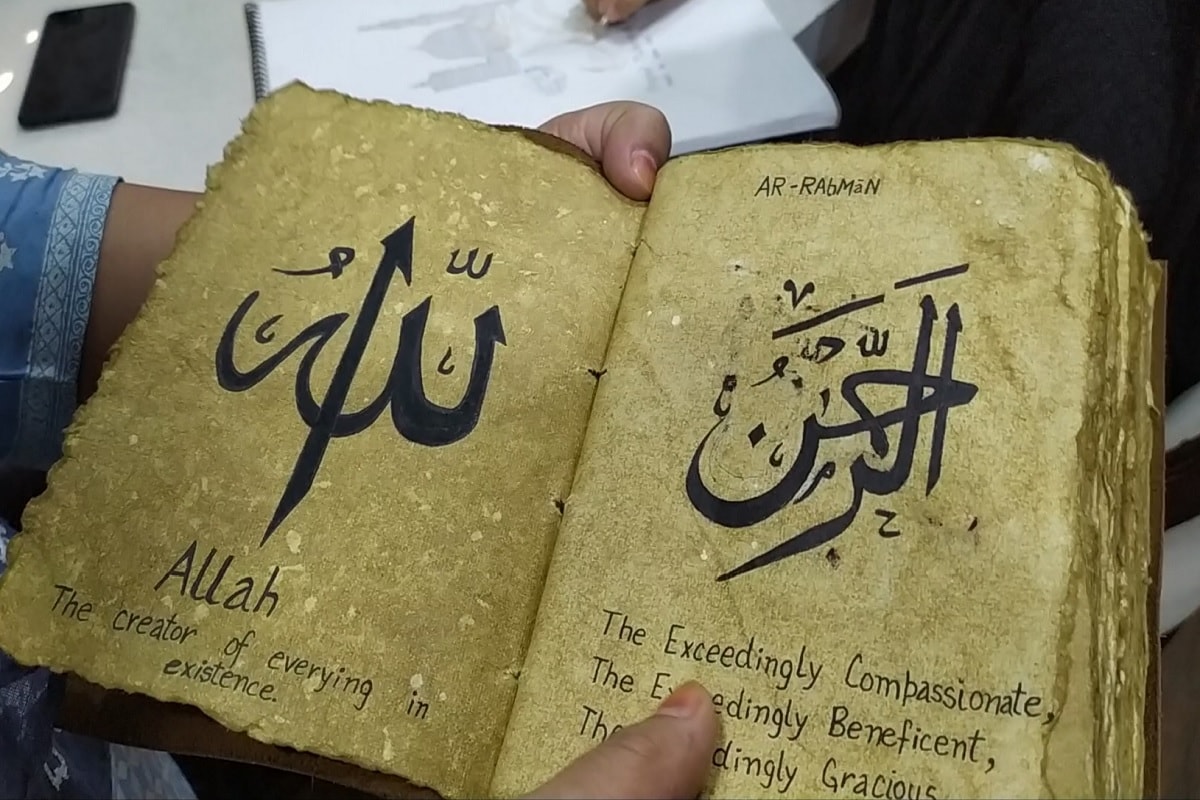 الله
Allah
The creator of everying in
existence.
AR-RAhMāN
الرحمن
The Exceedingly Compassionate,
The Exceedingly Beneficent,
The Gracious